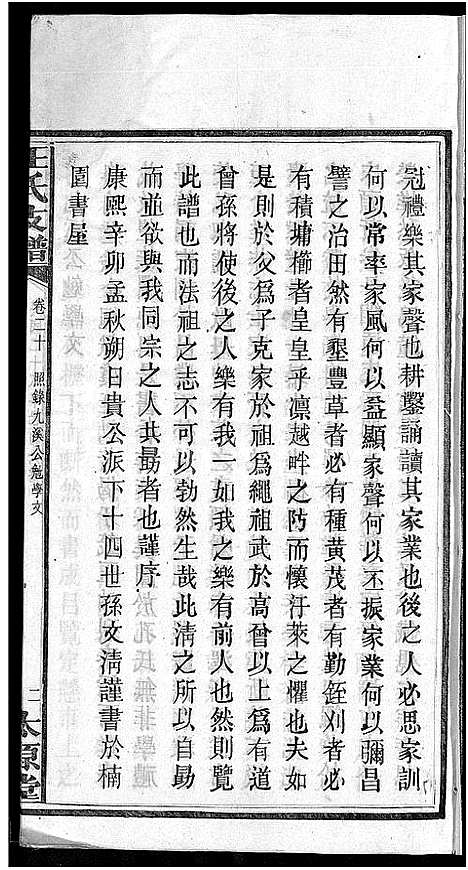 冠禮樂其家聲也耕鑿誦讀其家業也後之人必思家訓
何以常率家風何以益顯家聲何以丕振家業何以彌昌
譬之治田然有墾豐草者必有種黄茂者有勤銍刈者必
有積墉櫛者皇皇乎凛越畔之防而懷汙萊之懼也夫如
是則於父爲子克家於祖爲繩祖武於高曾以上爲有道
曾孫將使後之人樂有我一如我之樂有前人也然則覽
此譜也可法祖之志不可以勃然生哉此淸之所以自勗
而並欲與我同宗之人共勗者也謹序
康熙辛卯孟秋朔日貴公派下十四世孫文淸謹書於楠
園書屋
王氏支譜
卷二十
照錄九溪公勉學文
二
太原堂